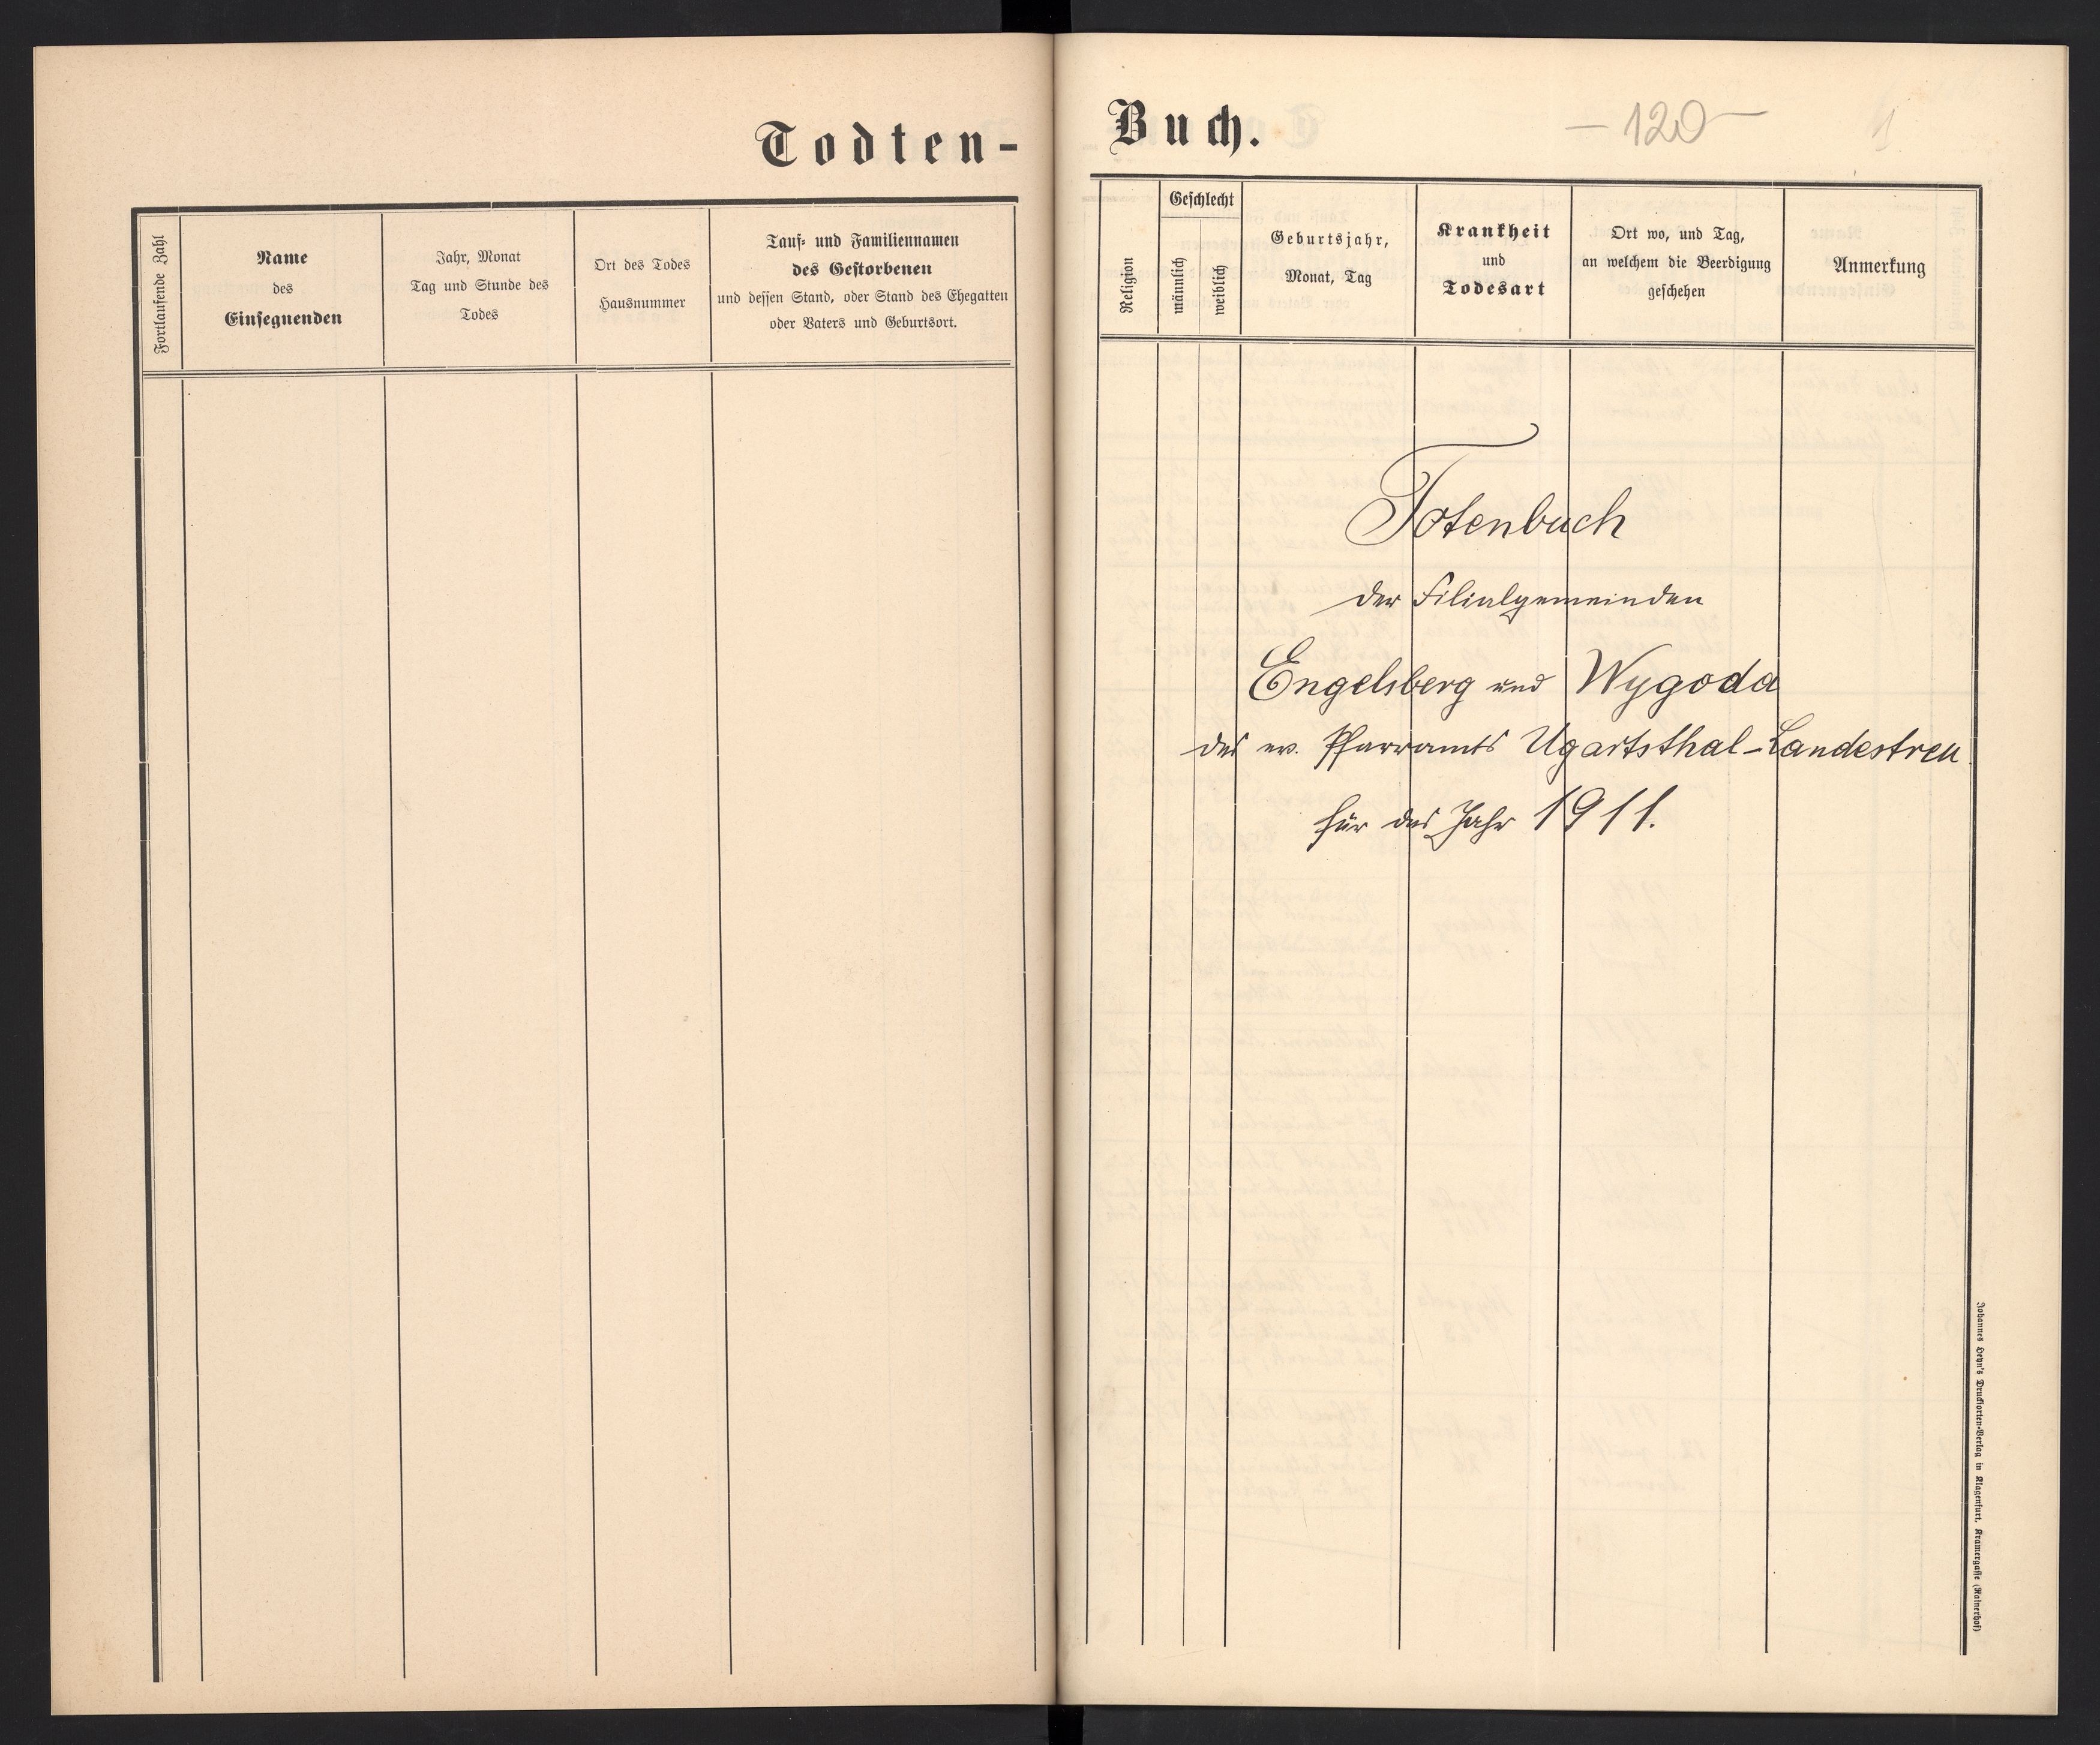 Todten-
Fortlaufende Zahl
Name
des
Einsegnenden
Jahr, Monat
Tag und Stunde des
Todes
Ort des Todes
Hausnummer
Tauf- und Familiennamen
des Gestorbenen
und dessen Stand, oder Stand des Ehegatten
oder Vaters und Geburtsort.
Buch.
- 120 -
1
Religion
Geschlecht
männlich
weiblich
Geburtsjahr,
Monat, Tag
Krankheit
und
Todesart
Ort wo, und Tag,
an welchem die Beerdigung
geschehen
Anmerkung
Totenbuch
der Filialgemeinden
Engelsberg und Wygoda
des ev. Pfarramts Ugartsthal-Landestreu
für das Jahr 1911.
Johannes Heyn's Drucksorten-Verlag in Klagenfurt, Kramergasse (Rainerhof)